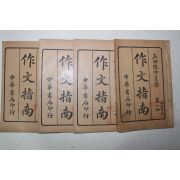 作文指南
中華書局印行
作文指南
中華書局印行
作文指南
中華書局印行
作文指南
中華書局印行